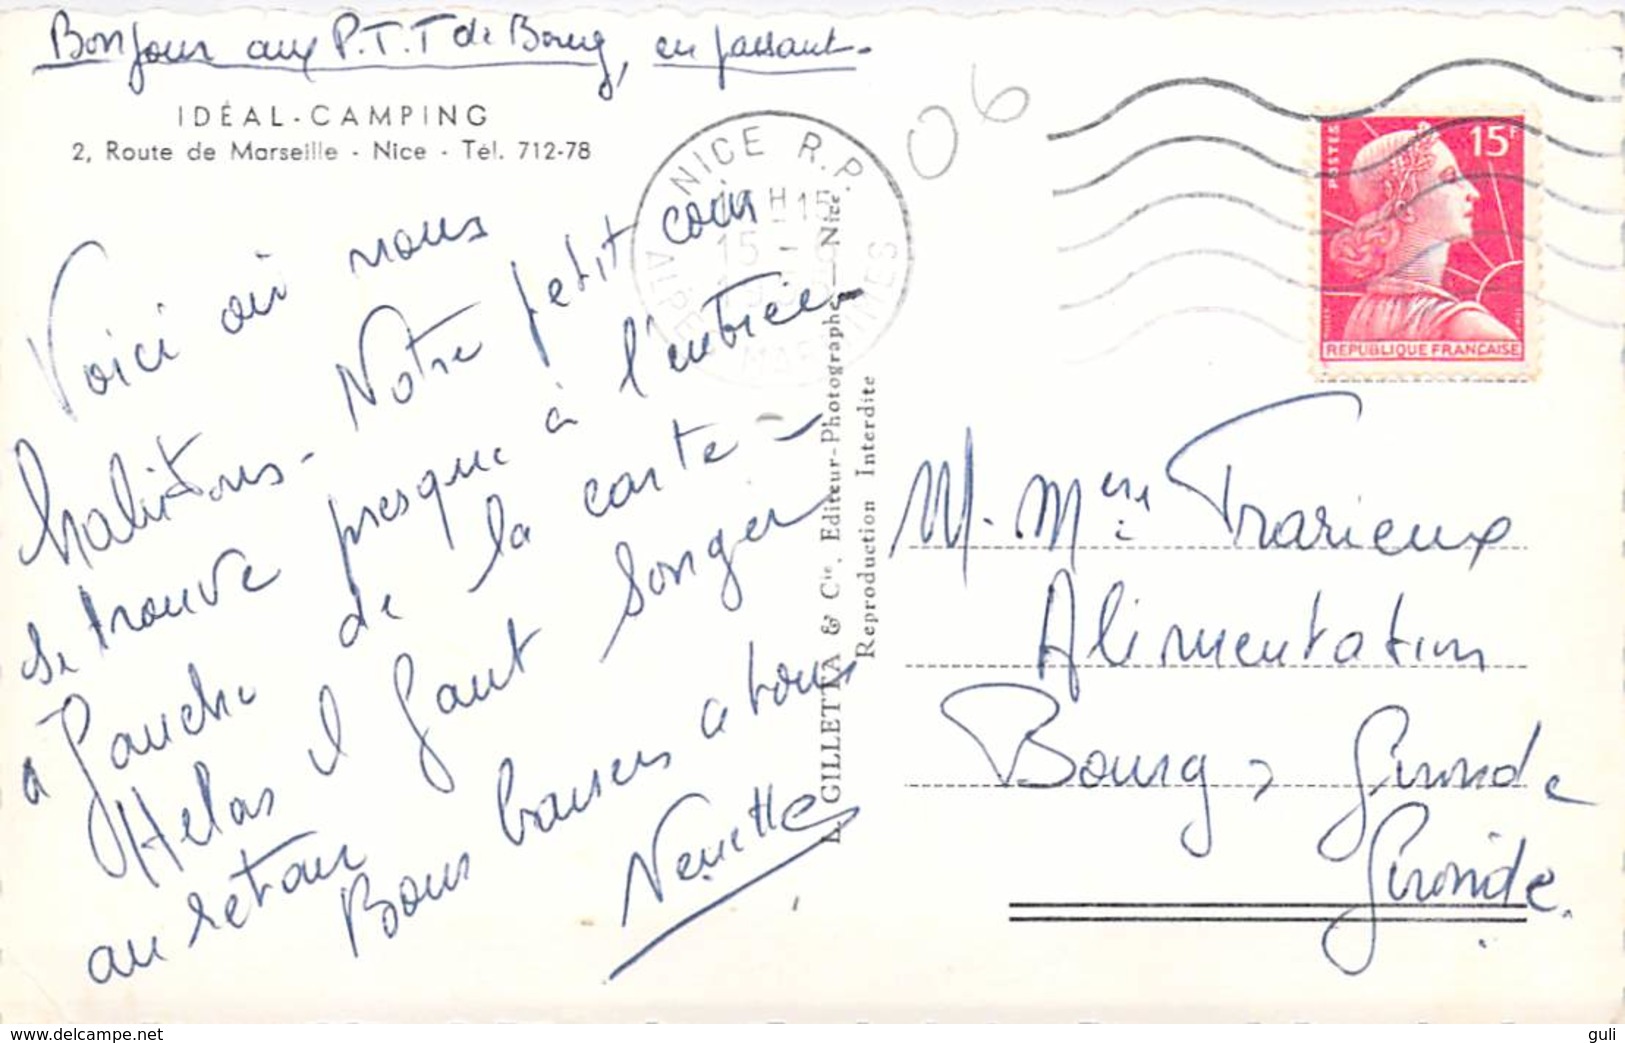 Bonjour aux P.T.T de Bourg, en passant.
IDÉAL-CAMPING
2, Route de Marseille - Nice - Tél. 712-78
Voici où nous
habitons. Notre petit coin
se trouve presque à l'entrée
à gauche de la carte -
Helas il faut songer
au retour
Bons baisers a tous
Nenette
NICE R.P.
ALPES MARITIMES
15
06
L. GILLETTA & Cie, Editeur-Photographe - Nice
Reproduction Interdite
POSTES
15F
REPUBLIQUE FRANÇAISE
M. Mme Trarieux
Alimentation
Bourg, Gironde
Gironde.
www.delcampe.net
guli